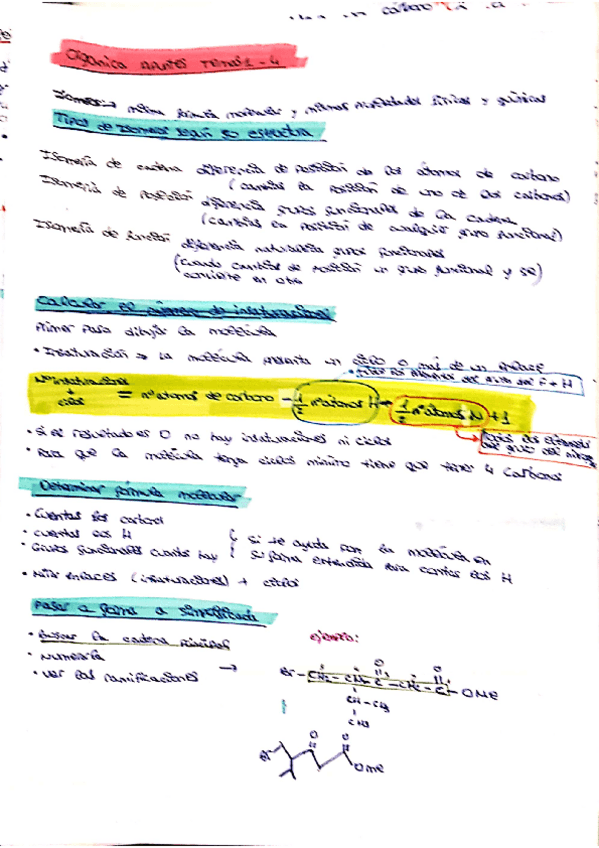 carbono
Orgánica apuntes temas 1 - 4
Isómeros → misma fórmula molecular y mismas propiedades físicas y químicas
Tipos de Isómeros según su estructura
Isomería de cadena diferencia de posición de los átomos de carbono
(cambias la posición de uno de los carbonos)
Isomería de Posición diferencia grupos funcionales de la cadena
(cambias en posición de cualquier grupo funcional)
Isomería de función diferencia naturaleza grupos funcionales
(cuando cambias de posición un grupo funcional y se
convierte en otro
Calcular el número de insaturaciones
Primer paso dibujar la molécula
• Insaturación → La molécula presenta un ciclo o más de un enlace
del F + H
Nº insaturaciones + ciclos = nº átomos de carbono - 1/2 nº átomos H + 1/2 nº átomos N + 1
• Si el resultado es 0 no hay insaturaciones ni ciclos
todos los elementos del grupo del
• Para que la molécula tenga ciclos mínimo tiene que tener 4 carbonos
Determinar fórmula molecular
• Cuentas los carbonos
• Cuentas los H
• Grupos funcionales cuantos hay
{ Si te ayuda pon la molécula en
su forma extendida para contar los H
• Mirar enlaces (insaturaciones) + ciclos
Pasar a forma a simplificada
• Buscar la cadena principal
• Numerarla
• Ver las ramificaciones →
ejemplo:
O O
Br - CH2 - CH - C - CH2 - C - OMe
CH - CH3
CH3
O O
Br OMe